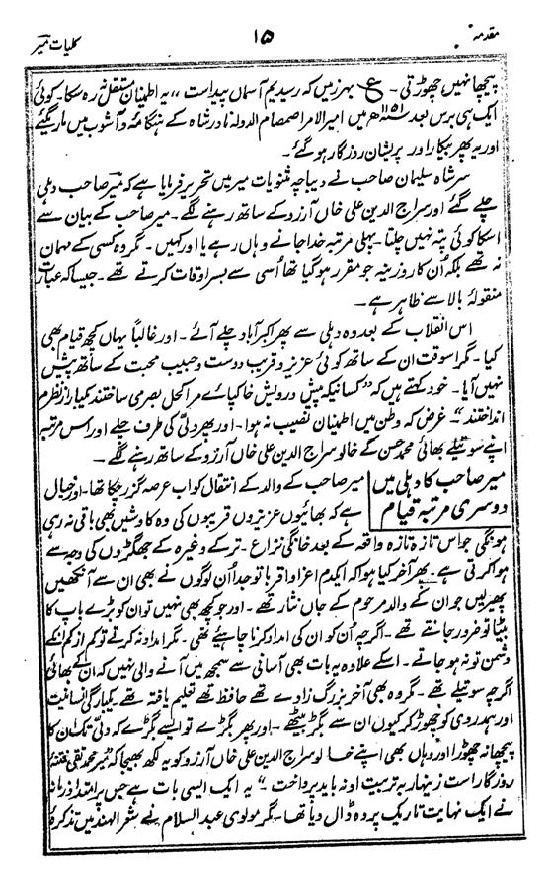 مقدمہ
۱۵
کلیات میر
پیچھا نہیں چھوڑتی ۔ ع بہر زمیں کہ رسیدیم آسماں پیداست " یہ اطمینان مستقل نہ رہ سکا۔ کوئی
ایک ہی برس بعد ۱۱۵۱ھ میں امیر الامرا صمصام الدولہ نادر شاہ کے ہنگامہ و آشوب میں مارے گئے
اور یہ پھر بیکار اور پریشان روزگار ہو گئے ۔
سر شاہ سلیمان صاحب نے دیباچہ مثنویات میر میں تحریر فرمایا ہے کہ میر صاحب دہلی
چلے گئے اور سراج الدین علی خاں آرزو کے ساتھ رہنے لگے ۔ میر صاحب کے بیان سے
اسکا کوئی پتہ نہیں چلتا ۔ پہلی مرتبہ خدا جانے وہاں رہے یا اور کہیں ۔ مگر وہ کسی کے مہمان
نہ تھے بلکہ اُن کا روزینہ جو مقرر ہو گیا تھا اُسی سے بسر اوقات کرتے تھے ۔ جیسا کہ عبارت
منقولۂ بالا سے ظاہر ہے ۔
اس انقلاب کے بعد وہ دہلی سے پھر اکبر آباد چلے آئے ۔ اور غالباً یہاں کچھ قیام بھی
کیا ۔ مگر اسوقت ان کے ساتھ کوئی عزیز و قریب دوست و حبیب محبت کے ساتھ پیش
نہیں آیا ۔ خود کہتے ہیں کہ " کسانیکہ پیش درویش خاکپائے مرا کحل بصر می ساختند یکبار از نظرم
انداختند " ۔ غرض کہ وطن میں اطمینان نصیب نہ ہوا ۔ اور پھر دلی کی طرف چلے اور اس مرتبہ
اپنے سوتیلے بھائی محمد حسن کے خالو سراج الدین علی خاں آرزو کے ساتھ رہنے لگے ۔
میر صاحب کا دہلی میں
دوسری مرتبہ قیام
میر صاحب کے والد کے انتقال کو اب عرصہ گزر چکا تھا ۔ اور خیال
ہے کہ بھائیوں عزیزوں قریبوں کی وہ کاوشیں بھی باقی نہ رہی
ہونگی جو اس تازہ تازہ واقعہ کے بعد خانگی نزاع ۔ ترکے وغیرہ کے جھگڑوں کی وجہ سے
ہوا کرتی ہے ۔ پھر آخر کیا ہوا کہ ایکدم اعزا و اقربا تو جدا اُن لوگوں نے بھی ان سے آنکھیں
پھیر لیں جو ان کے والد مرحوم کے جاں نثار تھے ۔ اور جو کچھ بھی نہیں تو ان کو بڑے باپ کا
بیٹا تو ضرور جانتے تھے ۔ اگرچہ اُن کو ان کی امداد کرنا چاہیئے تھی ۔ مگر امداد نہ کرتے تو کم از کم انکے
دشمن تو نہ ہو جاتے ۔ اسکے علاوہ یہ بات بھی آسانی سے سمجھ میں آنے والی نہیں کہ ان کے بھائی
اگرچہ سوتیلے تھے ۔ مگر وہ بھی آخر بزرگ زادے تھے حافظ تھے تعلیم یافتہ تھے ۔ یکبارگی انسانیت
اور ہمدردی کو چھوڑ کر کیوں ان سے بگڑ بیٹھے ۔ اور پھر بگڑے تو ایسے بگڑے کہ دلی تک ان کا
پیچھا نہ چھوڑا اور وہاں بھی اپنے خالو سراج الدین علی خاں آرزو کو یہ لکھ بھیجا کہ " میر محمد تقی فتنۂ
روزگار است زنہار بہ تربیت او نہ باید پرداخت " یہ ایک ایسی بات ہے جس پر امتداد زمانہ
نے ایک نہایت تاریک پردہ ڈال دیا تھا ۔ مگر مولوی عبد السلام نے شعر الہند میں تذکرۂ